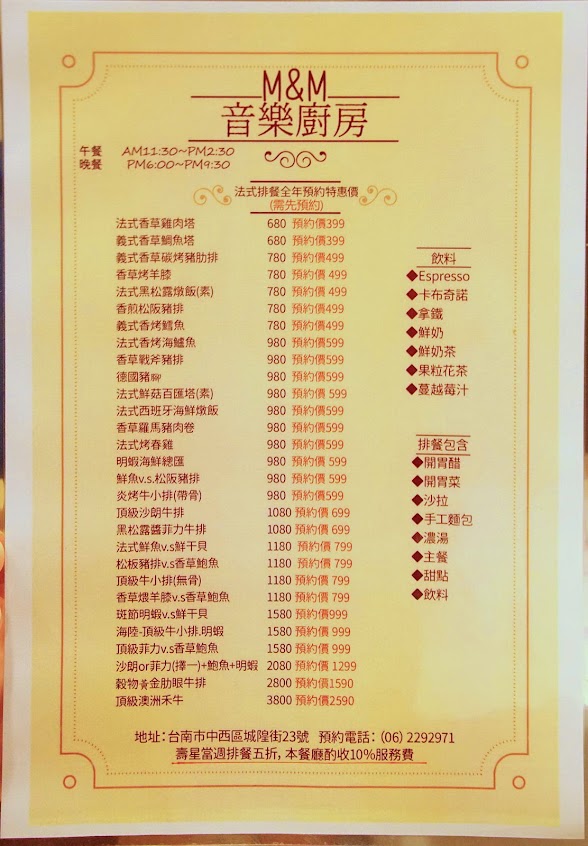 M&M
音樂廚房
午餐 AM11:30~PM2:30
晚餐 PM6:00~PM9:30
法式排餐全年預約特惠價
(需先預約)
法式香草雞肉塔 680 預約價399
義式香草鯛魚塔 680 預約價399
義式香草碳烤豬肋排 780 預約價499
香草烤羊膝 780 預約價 499
法式黑松露燉飯(素) 780 預約價 499
香煎松阪豬排 780 預約價499
義式香烤鱈魚 780 預約價499
法式香烤海鱸魚 980 預約價599
香草戰斧豬排 980 預約價599
德國豬腳 980 預約價599
法式鮮菇百匯塔(素) 980 預約價 599
法式西班牙海鮮燉飯 980 預約價599
香草羅馬豬肉卷 980 預約價599
法式烤春雞 980 預約價599
明蝦海鮮總匯 980 預約價 599
鮮魚v.s.松阪豬排 980 預約價 599
炎烤牛小排(帶骨) 980 預約價599
頂級沙朗牛排 1080 預約價 699
黑松露醬菲力牛排 1080 預約價 699
法式鮮魚v.s鮮干貝 1180 預約價 799
松板豬排v.s香草鮑魚 1180 預約價 799
頂級牛小排(無骨) 1180 預約價 799
香草煨羊膝v.s香草鮑魚 1180 預約價 799
斑節明蝦v.s鮮干貝 1580 預約價999
海陸-頂級牛小排.明蝦 1580 預約價 999
頂級菲力v.s香草鮑魚 1580 預約價 999
沙朗or菲力(擇一)+鮑魚+明蝦 2080 預約價 1299
穀物黃金肋眼牛排 2800 預約價1590
頂級澳洲禾牛 3800 預約價2590
飲料
◆Espresso
◆卡布奇諾
◆拿鐵
◆鮮奶
◆鮮奶茶
◆果粒花茶
◆蔓越莓汁
排餐包含
◆開胃醋
◆開胃菜
◆沙拉
◆手工麵包
◆濃湯
◆主餐
◆甜點
◆飲料
地址:台南市中西區城隍街23號 預約電話:(06) 2292971
壽星當週排餐五折,本餐廳酌收10%服務費